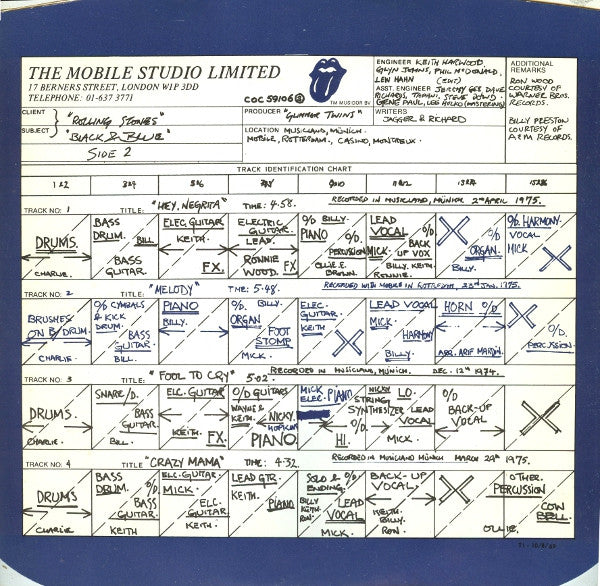 THE MOBILE STUDIO LIMITED
17 BERNERS STREET, LONDON W1P 3DD
TELEPHONE: 01-637 3771
COC 59106
TM MUSIDOR BV
ENGINEER KEITH HARWOOD,
GLYN JOHNS, PHIL McDONALD,
LEW HAHN (EDIT)
ASST. ENGINEER JEREMY GEE DAVE
RICHARDS, TAPANI, STEVE DOWD
GENE PAUL, LEE HULKO (MASTERING)
ADDITIONAL
REMARKS
RON WOOD
COURTESY OF
WARNER BROS.
RECORDS.
BILLY PRESTON
COURTESY OF
A&M RECORDS.
CLIENT "ROLLING STONES"
SUBJECT "BLACK & BLUE"
SIDE 2
PRODUCER "GLIMMER TWINS"
WRITERS
JAGGER & RICHARD
LOCATION MUSICLAND, MÜNICH
MOBILE, ROTTERDAM, CASINO, MONTREUX
TRACK IDENTIFICATION CHART
1&2 3&4 5&6 7&8 9&10 11&12 13&14 15&16
TRACK NO: 1 TITLE: "HEY, NEGRITA" TIME: 4.58. RECORDED IN MUSICLAND, MÜNICH 2nd APRIL 1975.
DRUMS.
CHARLIE.
BASS
DRUM. BILL
BASS
GUITAR.
ELEC GUITAR
KEITH.
FX.
ELECTRIC
GUITAR.
LEAD.
RONNIE
WOOD. FX
O/D BILLY.
PIANO
O/D
PERCUSSION
OLLIE E.
BROWN.
LEAD
VOCAL
MICK. O/D.
BACK
UP VOX
BILLY. KEITH.
RONNIE.
O/D
ORGAN.
BILLY.
O/D. HARMONY.
VOCAL
MICK
TRACK NO: 2 TITLE: "MELODY" TIME: 5-48. RECORDED WITH MOBILE IN ROTTERDAM, 23rd JAN. 1975.
BRUSHES
ON B/DRUM.
CHARLIE.
O/D CYMBALS
& KICK
DRUM.
BASS
GUITAR.
BILL.
PIANO
BILLY.
O/D. BILLY.
ORGAN
FOOT
STOMP
MICK.
ELEC.
GUITAR.
KEITH
LEAD VOCAL
MICK.
HARMONY
BILLY.
HORN O/D.
ARR. ARIF MARDIN.
O/D.
PERCUSSION.
TRACK NO: 3 TITLE: "FOOL TO CRY" 5.02. RECORDED IN MUSICLAND, MÜNICH. DEC. 12th 1974.
DRUMS.
CHARLIE.
SNARE/D.
BASS
GUITAR.
BILL.
ELC. GUITAR
KEITH. FX.
O/D GUITARS
WAYNE &
KEITH.
NICKY
HOPKINS
PIANO
MICK
ELEC. PIANO
HI.
NICKY LO.
STRING
SYNTHESIZER
LEAD
VOCAL
MICK.
O/D
BACK-UP
VOCAL
TRACK NO: 4 TITLE "CRAZY MAMA" TIME: 4.32. RECORDED IN MUSICLAND MÜNICH MARCH 29th 1975.
DRUMS
CHARLIE
BASS
DRUM. O/D.
BASS
GUITAR.
KEITH
ELC. GUITAR
MICK.
ELC.
GUITAR.
KEITH.
LEAD GTR.
KEITH.
PIANO
SOLO & O/D
ENDING.
BILLY
KEITH.
RON.
LEAD
VOCAL
MICK
BACK-UP
VOCAL.
KEITH.
BILLY.
RON.
OLLIE.
OTHER.
PERCUSSION
COW
BELL.